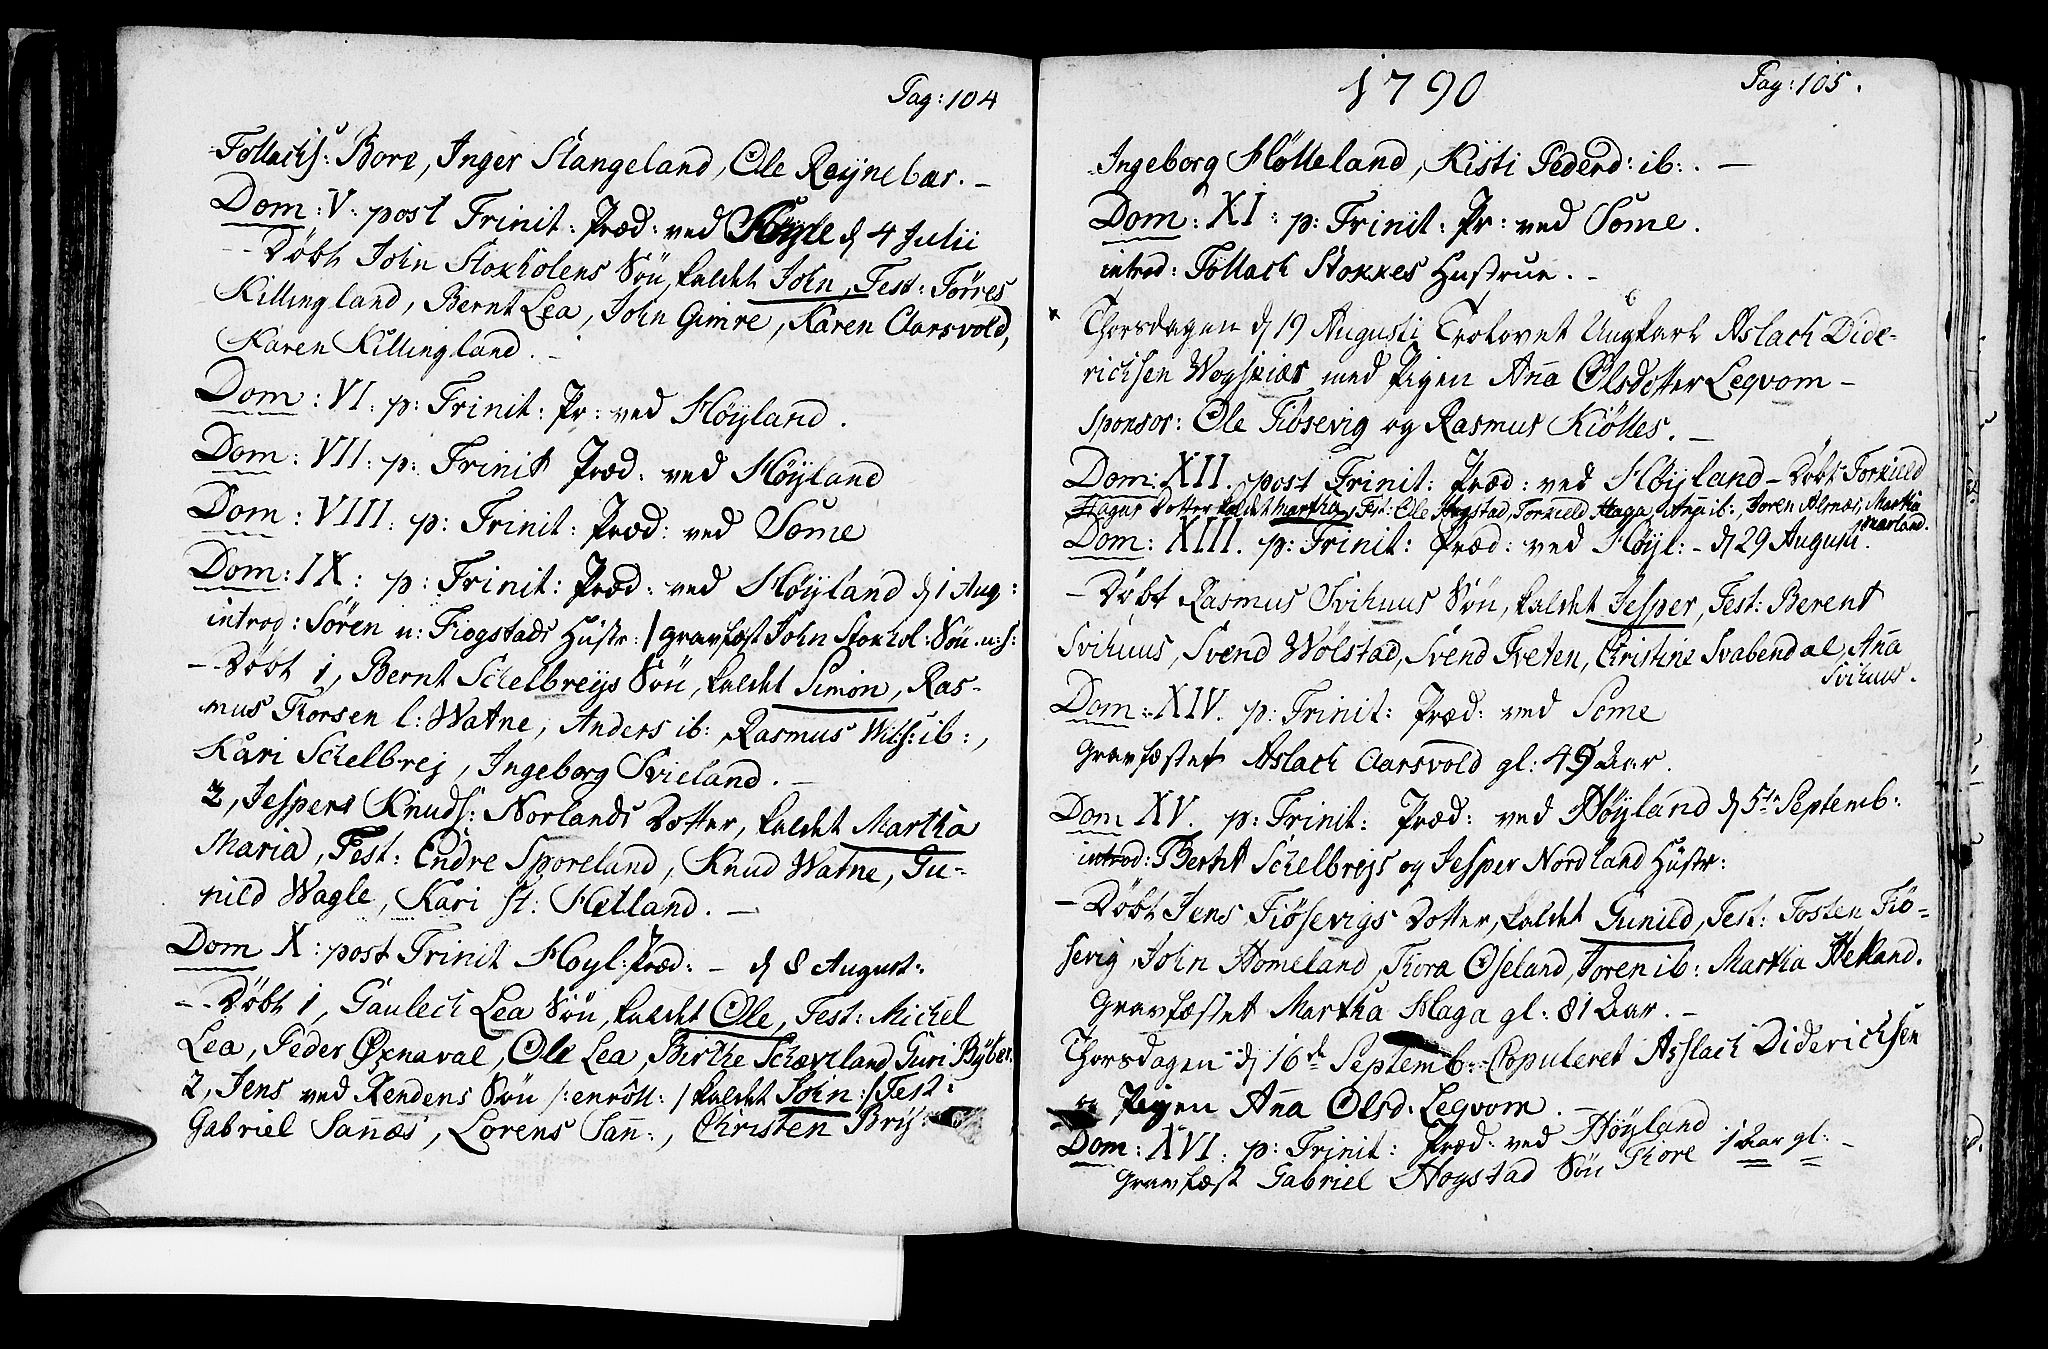 Pag: 104
Tollachs: Bore, Inger Stangeland, Ole Reÿnebær. -
Dom: V: post Trinit: Præd: ved Høyle d 4 Julii
- Døbt John Stokholens Søn, kaldet John, Test: Tørres
Killingland, Bernt Lea, John Gimre, Karen Aarsvold,
Karen Killingland. -
Dom: VI: p: Trinit: Pr: ved Høÿland.
Dom: VII: p: Trinit Præd: ved Høÿland
Dom: VIII: p: Trinit: Præd: ved Some
Dom: IX: p: Trinit: Præd: ved Høÿland d 1 Aug:
introd: Søren u: Fiogstads Hustr: / gravfæst John Stokhol: Søn u: s:
- Døbt 1, Bernt Schelbreÿs Søn, kaldet Simon, Ras-
mus Thorsen l: Watne, Anders ib:, Rasmus Wils: ib:,
Kari Schelbrej, Ingeborg Svieland. -
2, Jespers Knuds: Norlands Dotter, kaldet Martha
Maria, Test: Endre Sporeland, Knud Watne, Gu-
nild Wagle, Kari st: Hetland. -
Dom X: post Trinit Hoyl: Præd: - d 8 August:
- Døbt 1, Gaulech Lea Søn, kaldet Ole, Test: Michel
Lea, Peder Øxnaval, Ole Lea, Birthe Schæveland, Guri Bÿber.
2, Jens ved Rendens Søn /: enroll: / kaldet John: / Test:
Gabriel Sañæs, Lorens Sañ:, Christen Bris:
1790
Pag: 105.
Ingeborg Hølleland, Kisti Pederd: ib:. -
Dom: XI: p: Trinit: Pr: ved Some.
introd: Tollach Stokkes Hustrue. -
Thorsdagen d 19 Augusti Trolovet Ungkarl Aslach Dide-
richsen Wogskiær med Pigen Aña Olsdotter Leqvom -
sponsor: Ole Fiosevig og Rasmus Kiølles. -
Dom: XII. post Trinit: Præd: ved Høÿland - Døbt Torkield
Hagas Dotter kaldet Martha, Test: Ole Hogstad, Torkield Haga, Aña ib:, Soren Alsnæs, Martha
Marland.
Dom: XIII. p: Trinit: Præd: ved Høyl: - d 29 Augusti.
- Døbt Rasmus Svihuus Søn, kaldet Jesper, Test: Berent
Svihuus, Svend Wølstad, Svend Tveten, Christine Svabendal, Aña
Svihuus.
Dom: XIV. p: Trinit: Præd: ved Some
Gravfæstet Aslach Aarsvold gl: 49 Aar.
Dom XV. p: Trinit: Præd: ved Høÿland d 5te Septemb:
introd: Bernt Schelbrejs og Jesper Nordland Hustr:
- Døbt Jens Fiøsevigs Dotter, kaldet Gunild, Test: Tosten Fiø-
sevig, John Homeland, Thora Oseland, Toren ib: Martha Hetland.
Gravfæstet Martha Haga gl: 81 Aar. -
Thorsdagen d 16de Septemb: Copuleret Asslach Diderichsen
og Pigen Aña Olsd: Leqvom. -
Dom: XVI: p: Trinit: Præd: ved Høÿland
Gravfæst Gabriel Hogstad Søn Thore 1 Aar gl: -